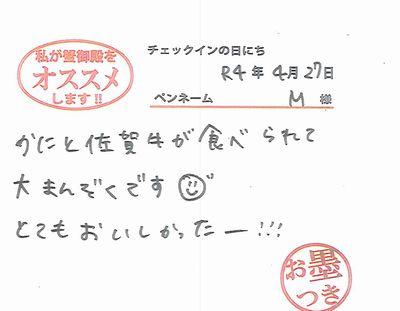 私が蟹御殿を
オススメ
します!!
チェックインの日にち
R4年4月27日
ペンネーム M 様
かにと佐賀牛が食べられて
大まんぞくです
とてもおいしかったー!!!
お墨
つき